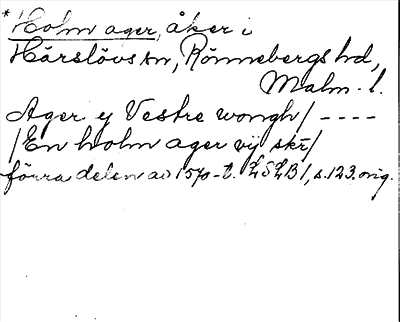 * Holm ager, åker i
Härslövs sn, Rönnebergs hd,
Malm. l.
Ager ej Vestre wongh / ----
/ En holm ager vij skr /
förra delen av 1570-t. LSLB 1, s. 123. orig.